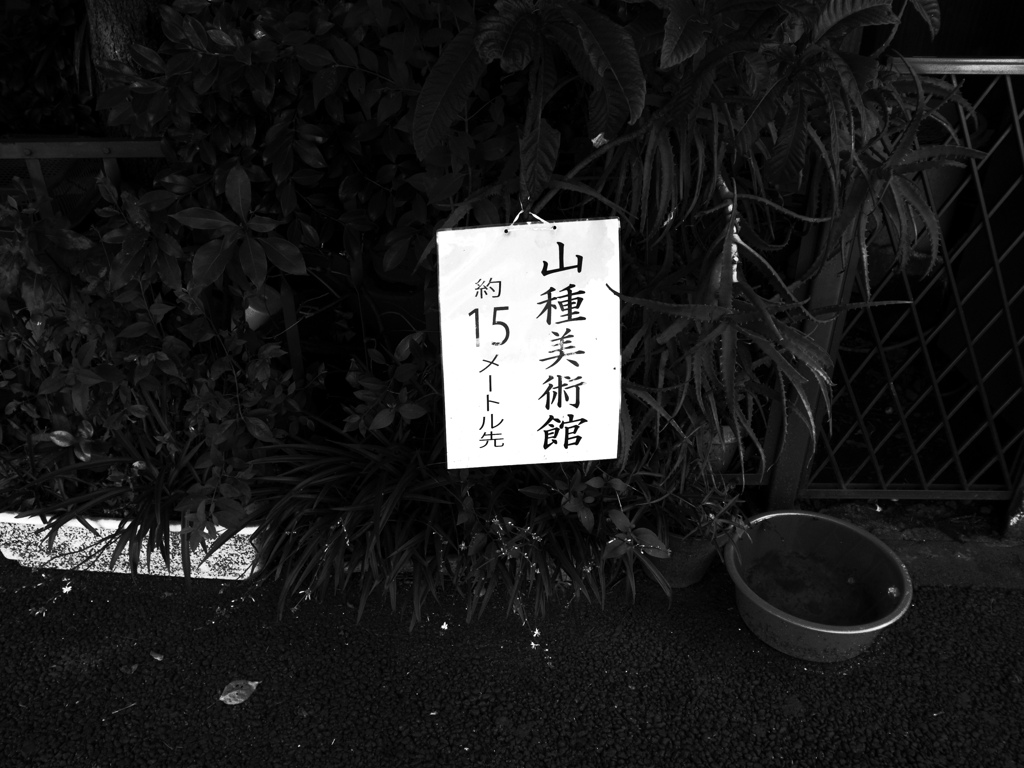 山種美術館
約15メートル先